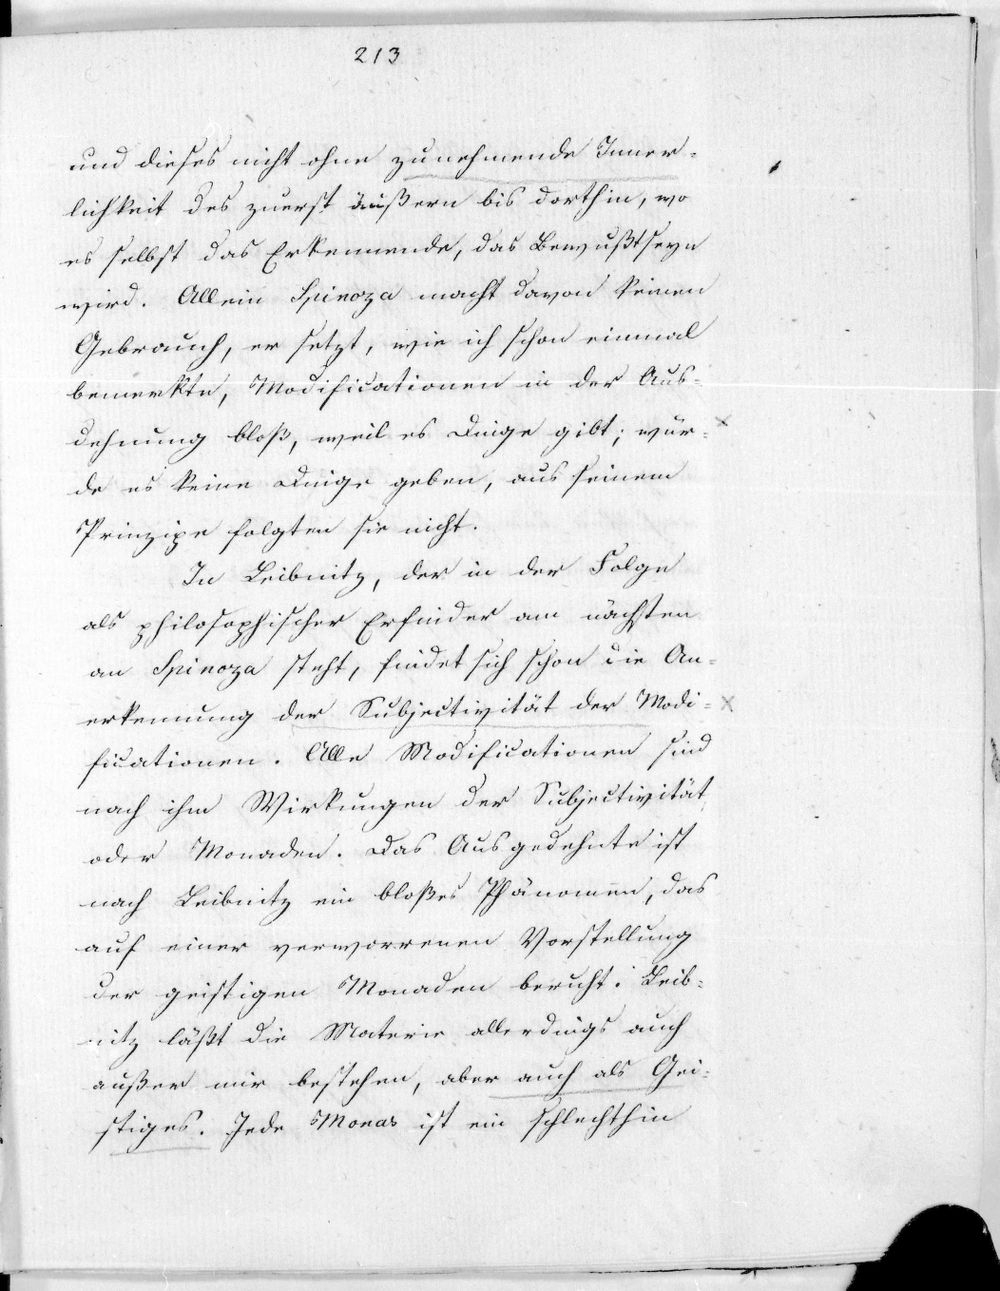 213
und dieses nicht ohne zunehmende Inner-
lichkeit des zuerst äußern bis dorthin, wo
es selbst das Erkennende, das Bewußtseyn
wird. Allein Spinoza macht davon keinen
Gebrauch, er setzt, wie ich schon einmal
bemerkte, Modificationen in der Aus-
dehnung bloß, weil es Dinge gibt; wür-
de es keine Dinge geben, aus seinem
Prinzipe folgten sie nicht.
In Leibnitz, der in der Folge
als philosophischer Erfinder am nächsten
an Spinoza steht, findet sich schon die An-
erkennung der Subjectivität der Modi-
ficationen. Alle Modificationen sind
nach ihm Wirkungen der Subjectivität
oder Monaden. Das Ausgedehnte ist
nach Leibnitz ein bloßes Phänomen, das
auf einer verworrenen Vorstellung
der geistigen Monaden beruht. Leib-
nitz läßt die Materie allerdings auch
außer mir bestehen, aber auch als Gei-
stiges. Jede Monas ist ein schlechthin